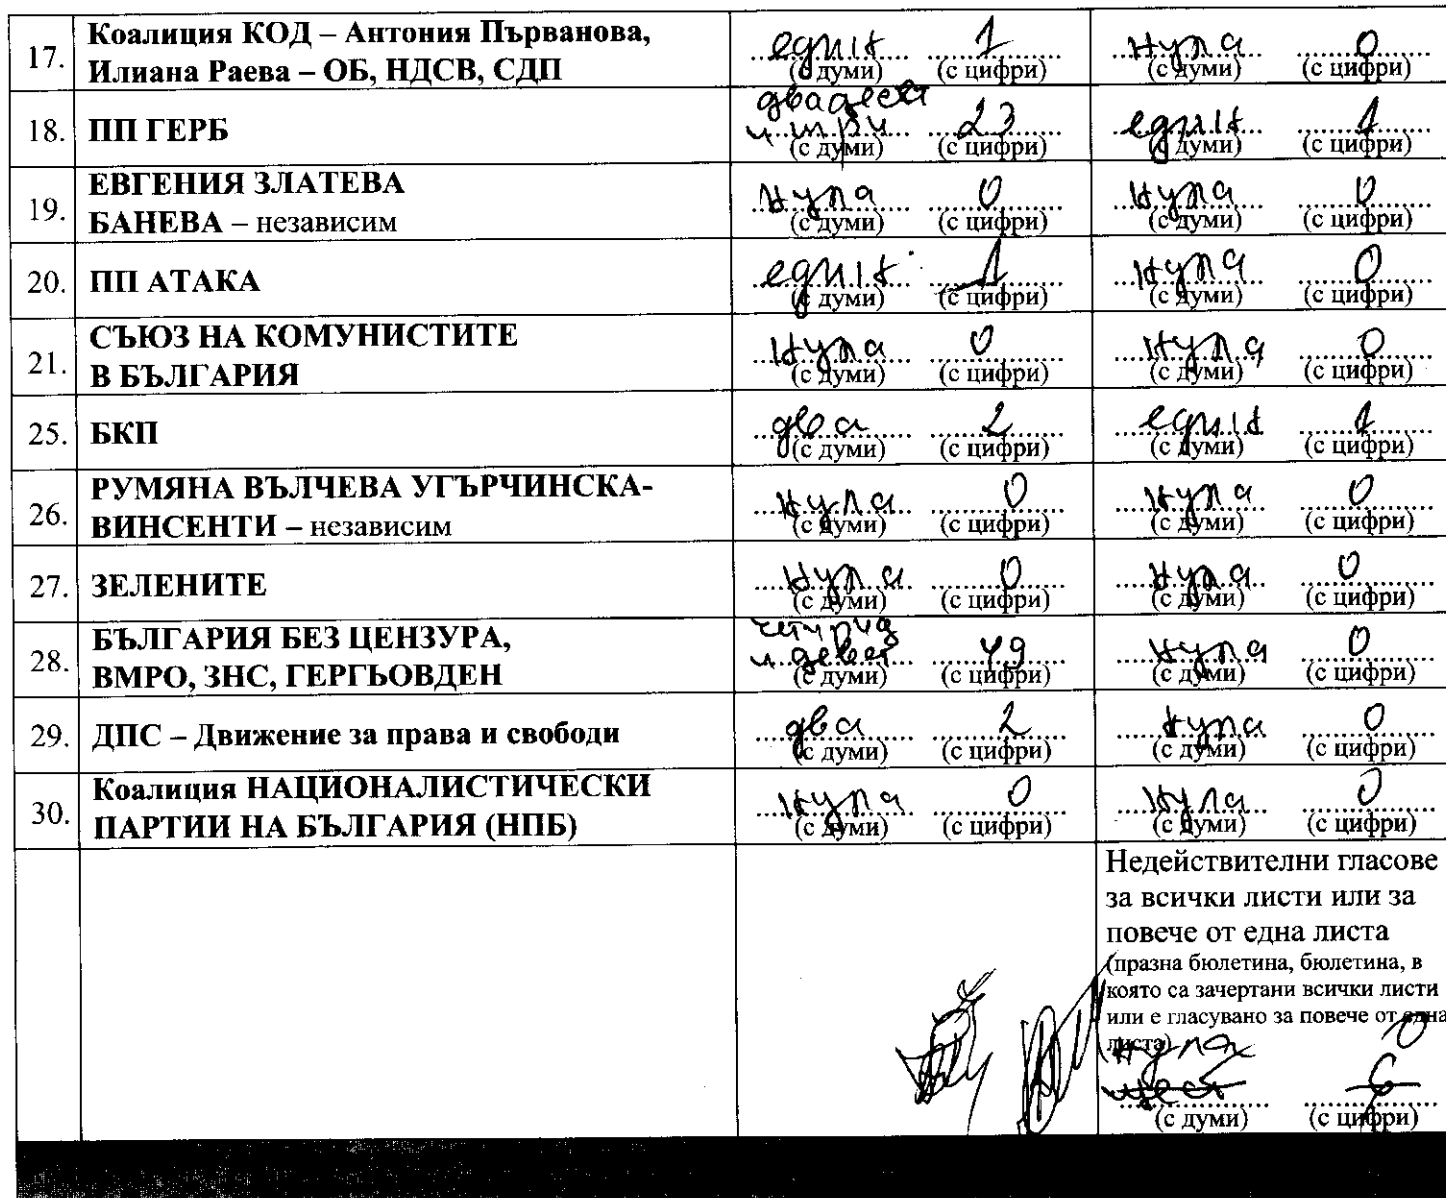 17. Коалиция КОД – Антония Първанова, Илиана Раева – ОБ, НДСВ, СДП един (с думи) 1 (с цифри) нула (с думи) 0 (с цифри)
18. ПП ГЕРБ двадесет и три (с думи) 23 (с цифри) един (с думи) 1 (с цифри)
19. ЕВГЕНИЯ ЗЛАТЕВА БАНЕВА – независим нула (с думи) 0 (с цифри) нула (с думи) 0 (с цифри)
20. ПП АТАКА един (с думи) 1 (с цифри) нула (с думи) 0 (с цифри)
21. СЪЮЗ НА КОМУНИСТИТЕ В БЪЛГАРИЯ нула (с думи) 0 (с цифри) нула (с думи) 0 (с цифри)
25. БКП два (с думи) 2 (с цифри) един (с думи) 1 (с цифри)
26. РУМЯНА ВЪЛЧЕВА УГЪРЧИНСКА-ВИНСЕНТИ – независим нула (с думи) 0 (с цифри) нула (с думи) 0 (с цифри)
27. ЗЕЛЕНИТЕ нула (с думи) 0 (с цифри) нула (с думи) 0 (с цифри)
28. БЪЛГАРИЯ БЕЗ ЦЕНЗУРА, ВМРО, ЗНС, ГЕРГЬОВДЕН и девет (с думи) 49 (с цифри) нула (с думи) 0 (с цифри)
29. ДПС – Движение за права и свободи два (с думи) 2 (с цифри) нула (с думи) 0 (с цифри)
30. Коалиция НАЦИОНАЛИСТИЧЕСКИ ПАРТИИ НА БЪЛГАРИЯ (НПБ) нула (с думи) 0 (с цифри) нула (с думи) 0 (с цифри)
Недействителни гласове
за всички листи или за
повече от една листа
(празна бюлетина, бюлетина, в
която са зачертани всички листи
или е гласувано за повече от една
листа)
нула 0
шест 6
(с думи) (с цифри)